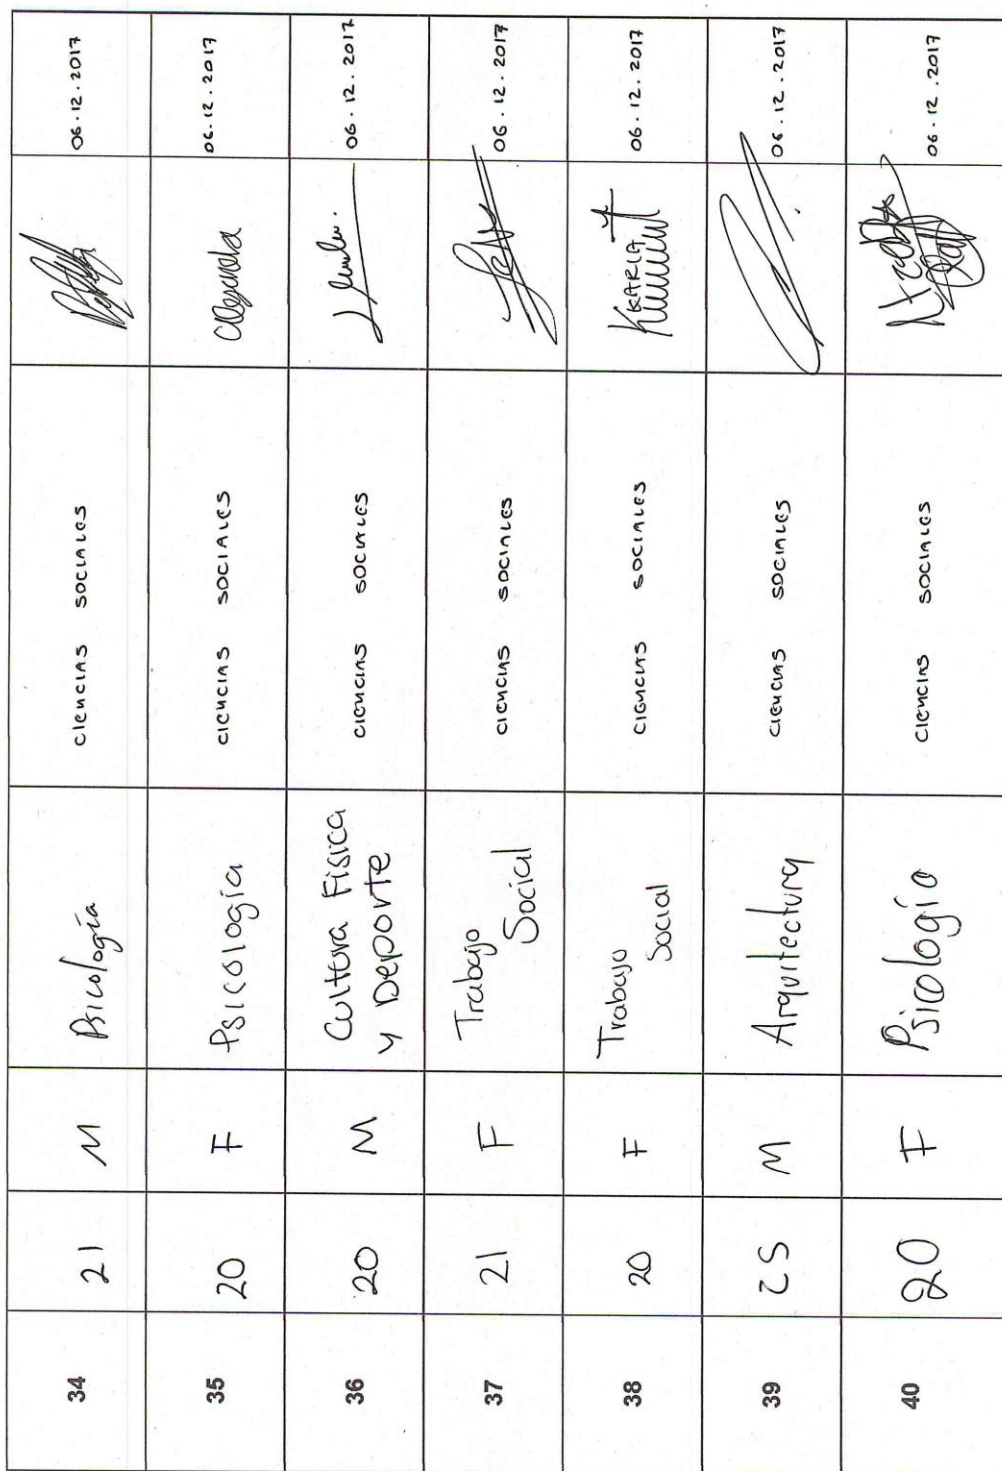 34 21 M Psicología ciencias sociales 06.12.2017
35 20 F Psicología ciencias sociales 06.12.2017
36 20 M Cultura Fisica
y Deporte ciencias sociales 06.12.2017
37 21 F Trabajo
Social ciencias sociales 06.12.2017
38 20 F Trabajo
Social ciencias sociales KARLA 06.12.2017
39 25 M Arquitectura ciencias sociales 06.12.2017
40 20 F Psicología ciencias sociales 06.12.2017